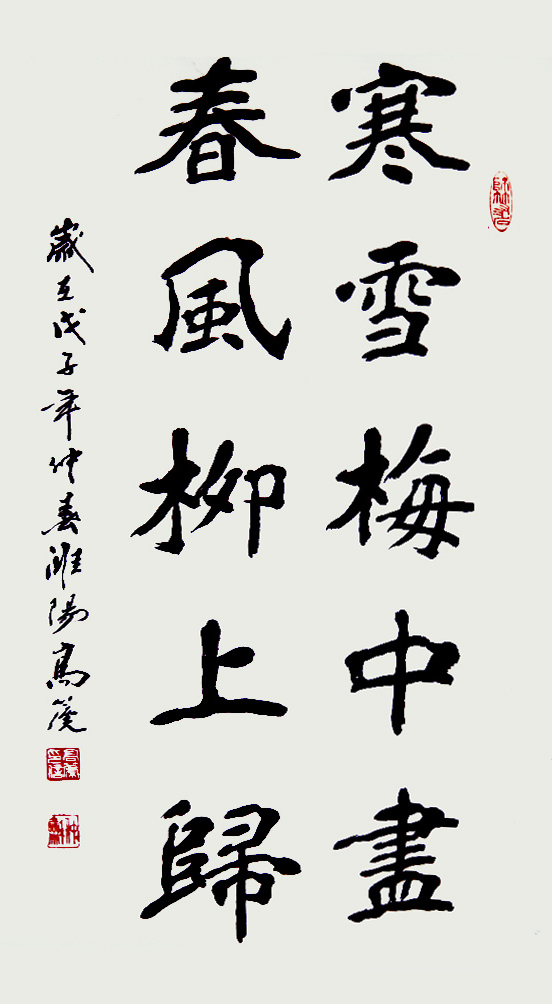 寒雪梅中盡
春風柳上歸
歲在戊子年仲春濉陽高箴